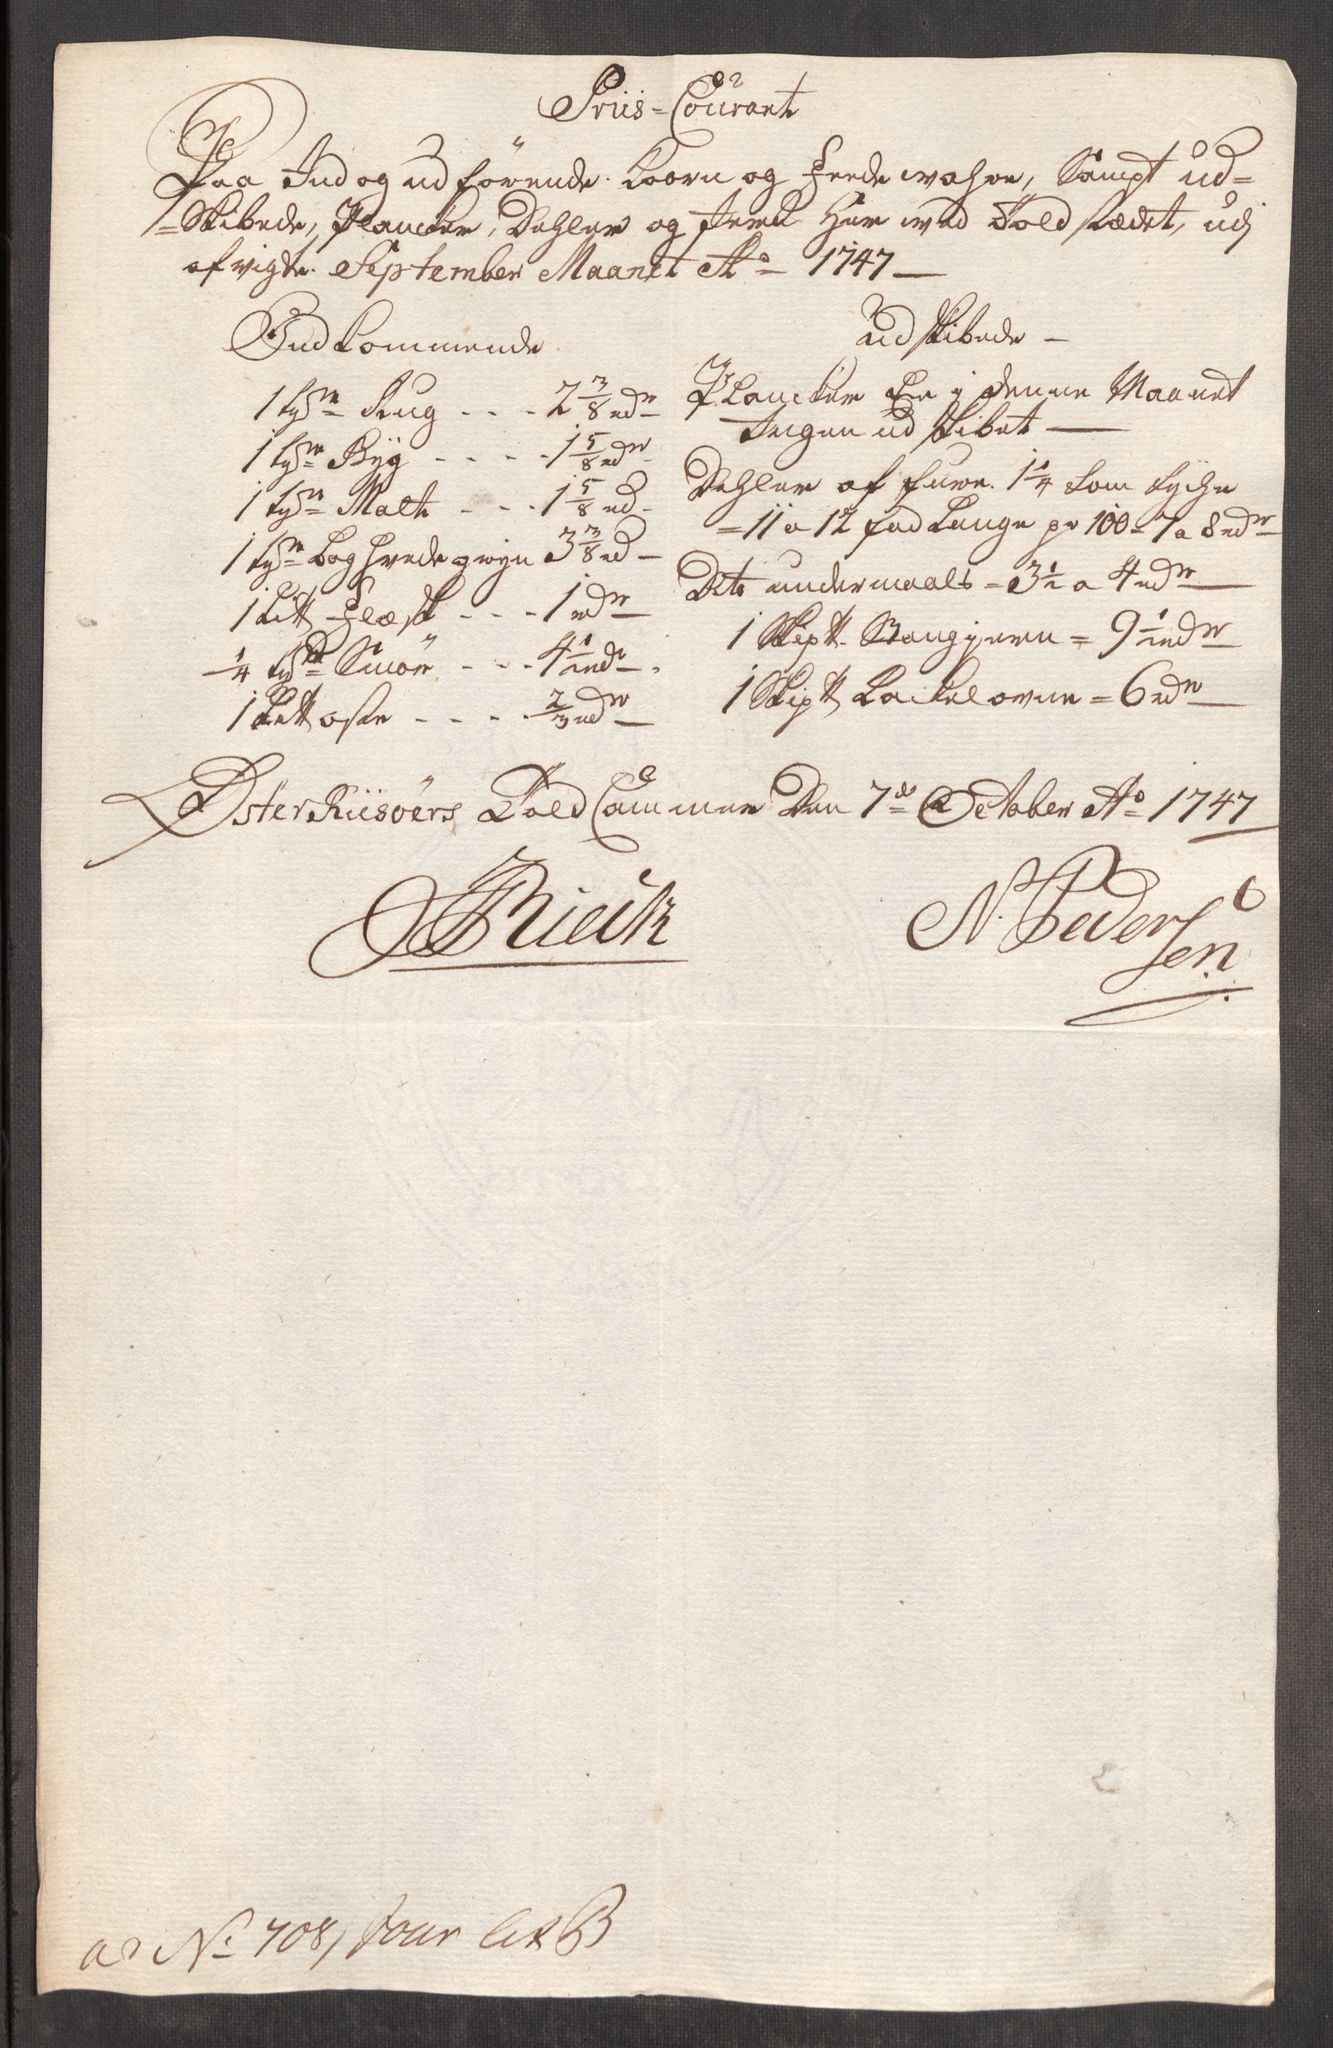 Priis-Courant
Paa Ind og udförende Koorn og feede wahre, Sampt ud=
=Skibede, Plancker, Dehler og Jern Her wed Toldstædet, udj
afvigte September Maanet Ao 1747
Indkommende
1 tdr Rug - - - 2 3/8 rdr
1 tdr Byg - - - - 1 5/8 rdr
1 tdr Malt - - - 1 5/8 rd
1 tdr boghvede gryn 3 3/8 rd
1 Litt flæsk - - - 1 rdr
1/4 td Smör - - - 4 1/2 rdr
1 Litt oste - - - - 2/3 rdr
Udskibede
Plancker Er j denne Maanet
Ingen udskibet
Dehler af furre 1 1/4 tom tyche
= 11 a 12 fod lange pr 100 = 7 a 8 rdr
Dito undermaals = 3 1/2 a 4 rdr
1 Skipt Stangjern = 9 1/2 rdr
1 Skipt Kackelovne = 6 rdr
ØsterRiisöers Told Cammer Den 7de October Ao 1747
Rieck
N. Peder
sen
No 708, Jour Lit B